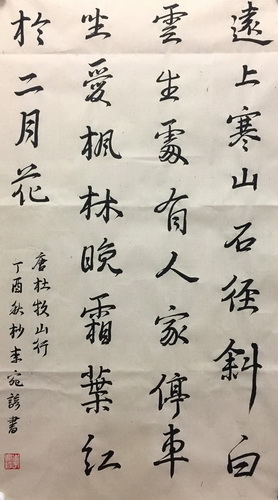 遠上寒山石徑斜白
雲生處有人家停車
坐愛楓林晚霜葉紅
於二月花
唐杜牧山行
丁酉秋杪李宛書